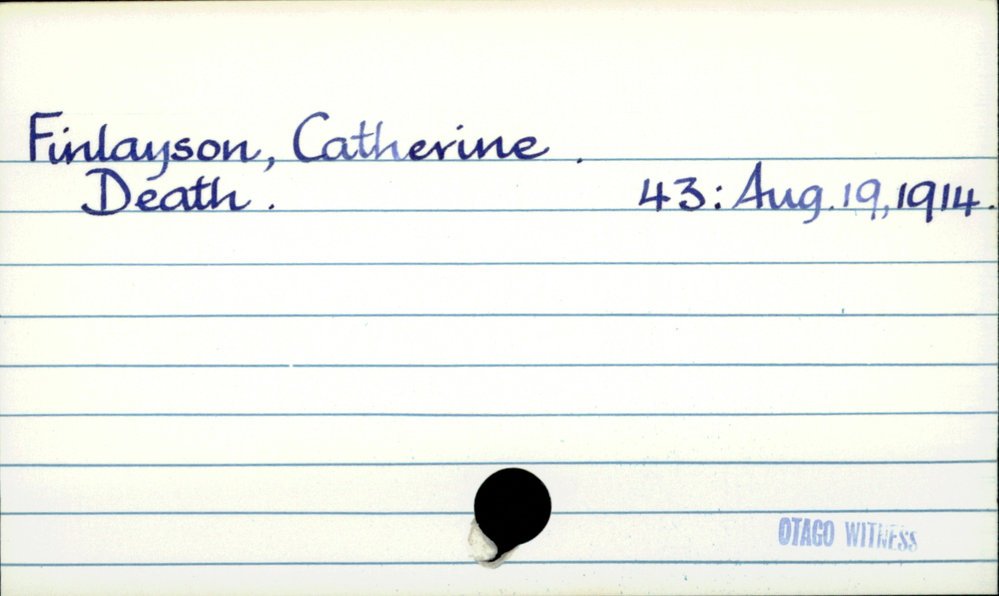 Finlayson, Catherine.
Death. 43: Aug. 19, 1914.
OTAGO WITNESS